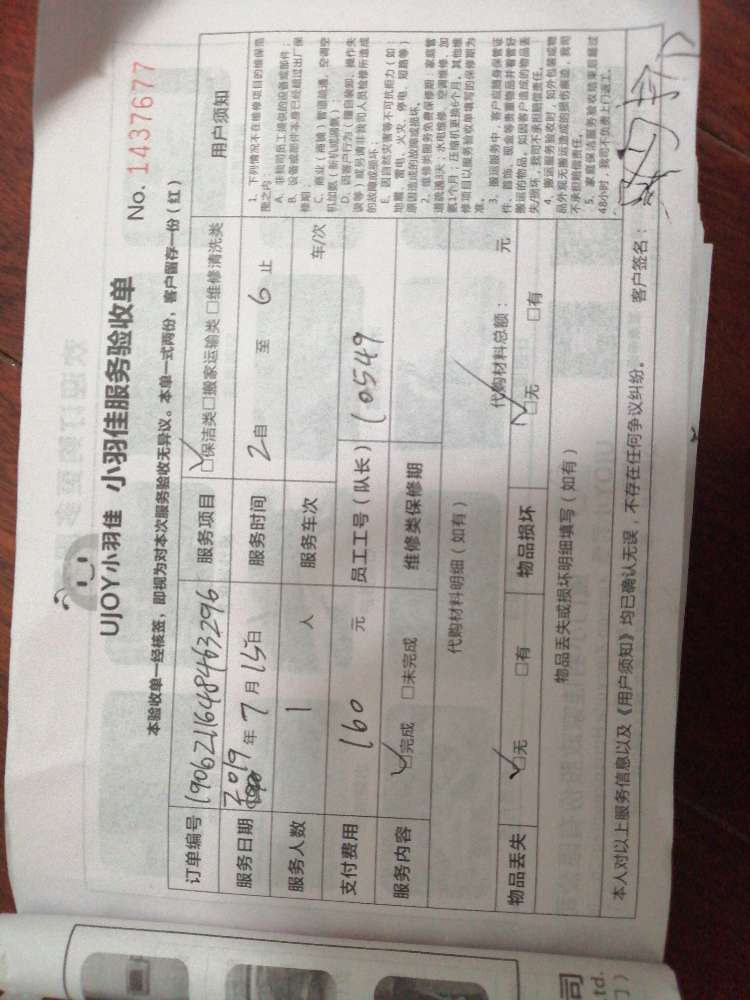 UJOY小羽佳 小羽佳服务验收单
No. 1437677
本验收单一经核签，即视为对本次服务验收无异议。本单一式两份，客户留存一份（红）
订单编号 190621164846463296 服务项目 □保洁类□搬家运输类 □维修清洗类 用户须知
服务日期 2019 年 7 月 15 日 服务时间 2 自 至 6 止
服务人数 1 人 服务车次 车/次
支付费用 160 元 员工工号（队长） 10549
服务内容 □完成 □未完成 维修类保修期
代购材料明细（如有） 代购材料总额： 元
物品丢失 □无 □有 物品损坏 □无 □有
物品丢失或损坏明细填写（如有）
1. 下列情况不在维修项目的维保范
围之内：
A. 非我司员工提供的设备或部件；
B. 设备或部件本身已经超过出厂保
修期；
C. 商业（商铺）管道疏通，空调空
机加氨（新机或漏氨）；
D. 因客户行为（擅自装卸、操作失
误等）或另请非我司人员检修所造成
的故障或损坏；
E. 因自然灾害等不可抗拒力（如：
地震、雷电、火灾、停电、短路等）
原因造成的故障或损坏。
2. 维修类服务免费保修期：家庭管
道疏通3天；水电维修、空调维修、加
氨1个月；压缩机更换6个月。其他维
修项目以服务验收单填写的保修期为
准。
3. 搬运服务中，客户应随身保管证
件、首饰、现金等贵重物品并看管好
搬运的物品，如因客户造成的物品丢
失/损坏，我司不承担赔偿责任。
4. 搬运服务验收时，如外包装或物
品外观无搬运造成的损伤痕迹，我司
不承担赔偿责任。
5. 家庭保洁服务验收结束后超过
48小时，我司不负责上门返工。
本人对以上服务信息以及《用户须知》均已确认无误，不存在任何争议纠纷。 客户签名：
司
td.